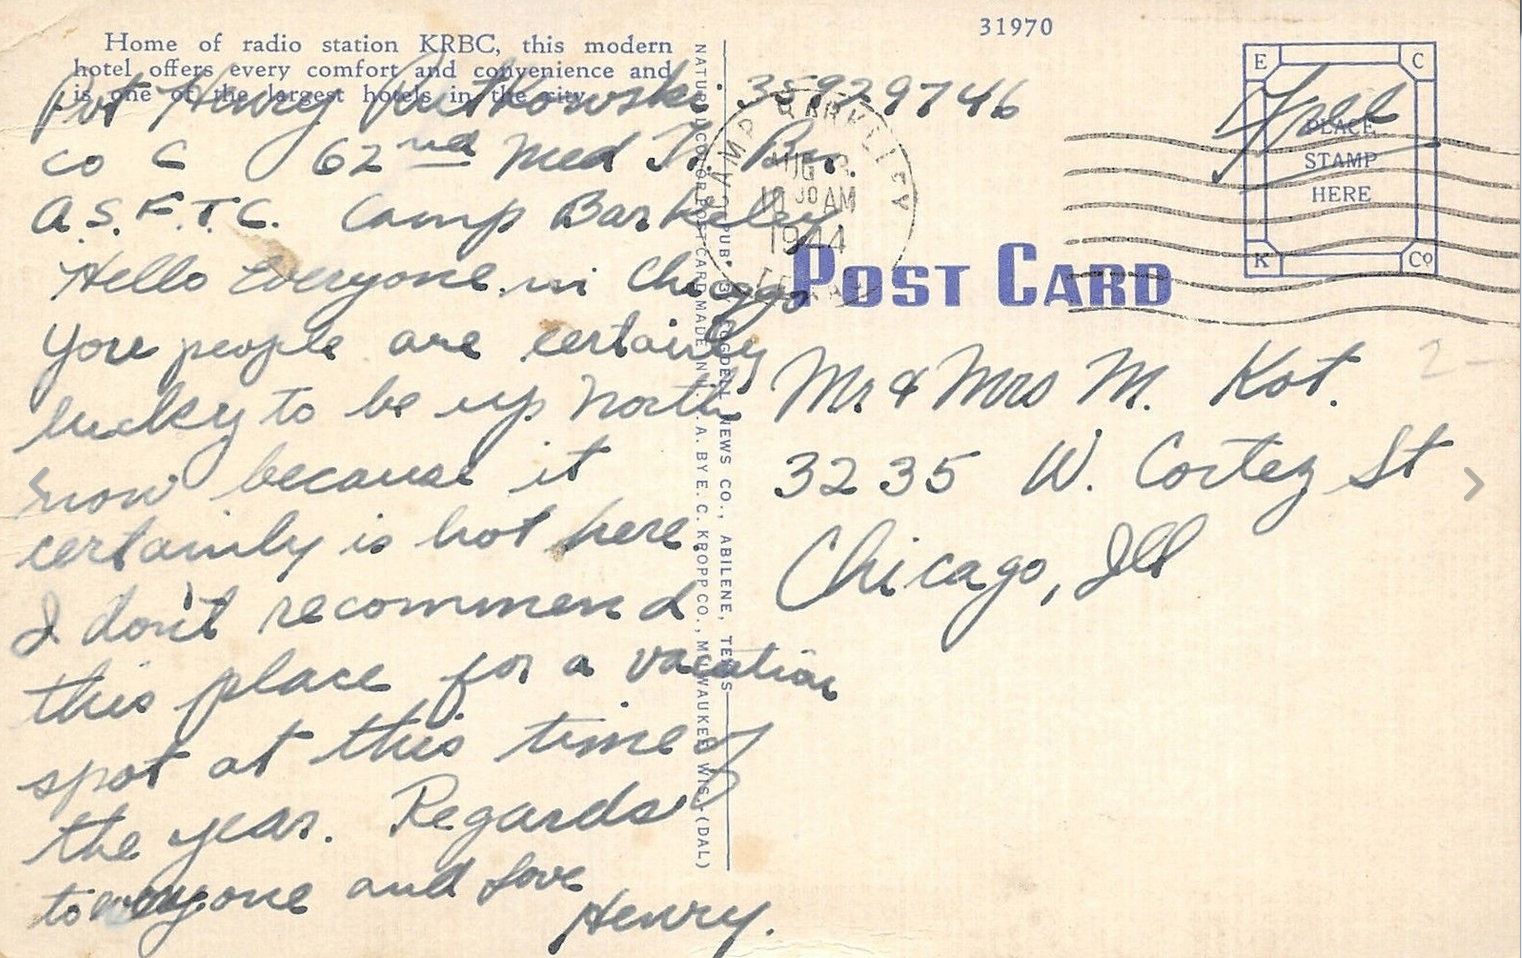 31970
Home of radio station KRBC, this modern
hotel offers every comfort and convenience and
is one of the largest hotels in the city.
Pvt Henry Rutkowski. 35929746
Co C 62nd Med Tr. Bn.
A.S.F.T.C. Camp Barkeley
Hello Everyone in Chicago
You people are certainly
lucky to be up North
now because it
certainly is hot here.
I don't recommend
this place for a vacation
spot at this time of
the year. Regards
to everyone and Love
Henry.
NATURAL COLOR POST CARD MADE IN U. S. A. BY E. C. KROPP CO., MILWAUKEE, WIS.-(DAL)
PUB. BY OGDEN NEWS CO., ABILENE, TEXAS
CAMP BARKELEY
AUG
10 30 AM
1944
TEXAS
POST CARD
E C
K Co
PLACE
STAMP
HERE
Free
Mr & Mrs M. Kot.
3235 W. Cortez St
Chicago, Ill
2-